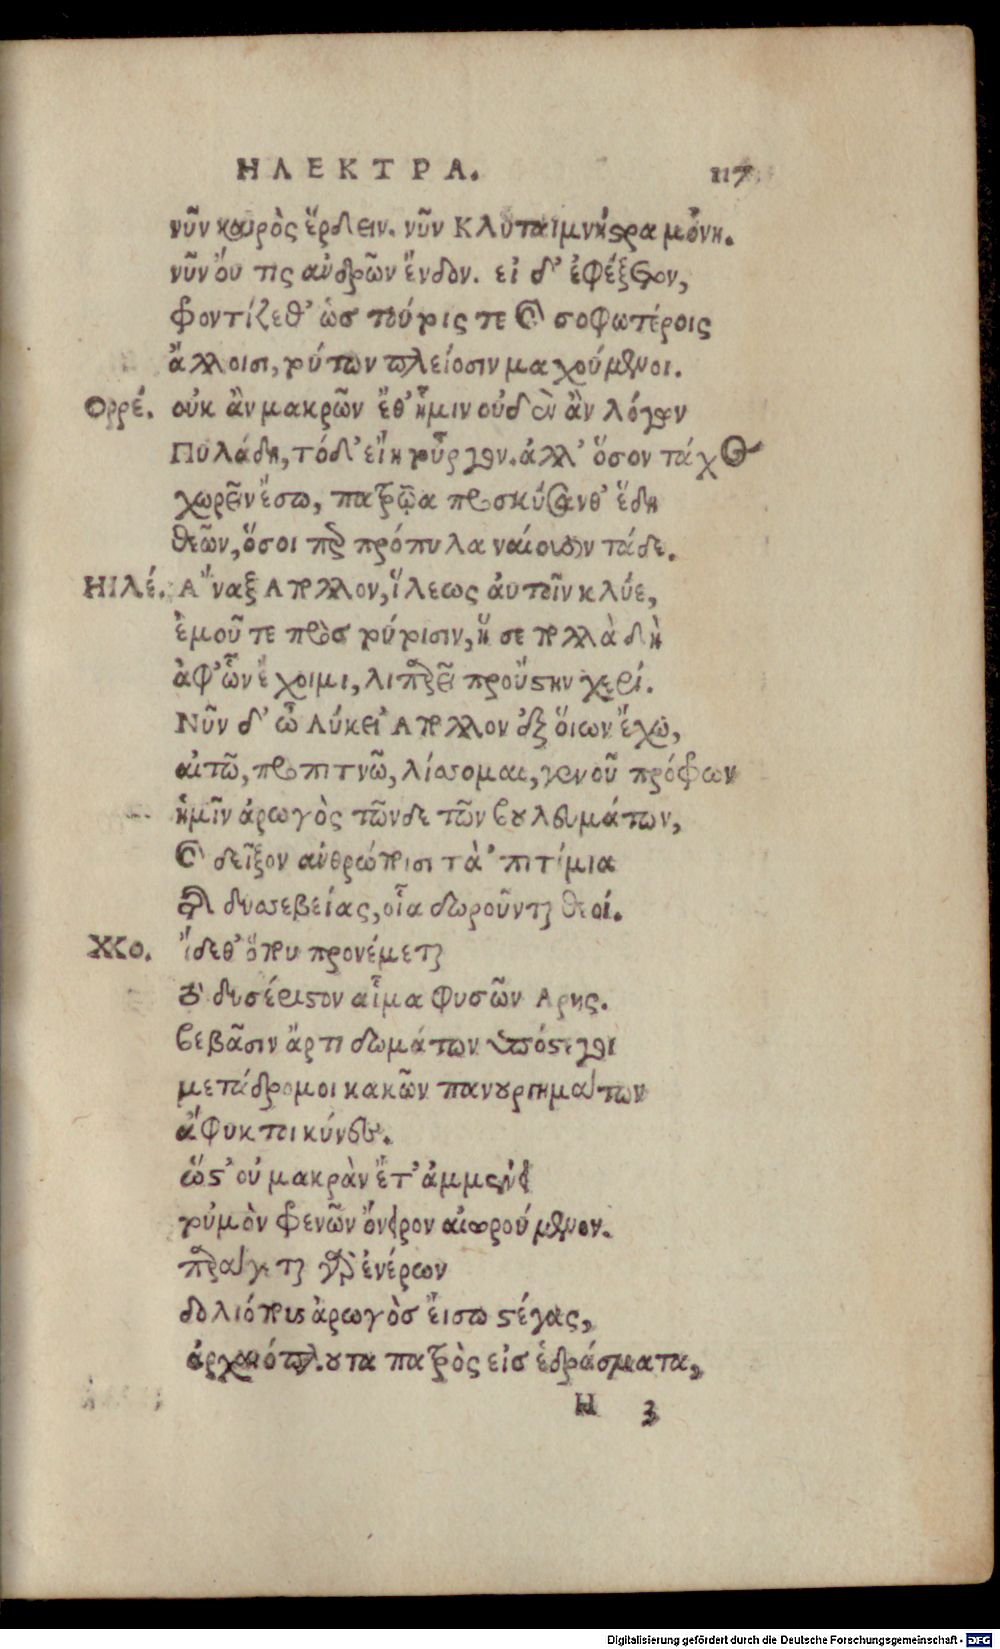 ΗΛΕΚΤΡΑ. 117
νῦν καιρὸς ἔρδειν. νῦν Κλυταιμνήστρα μόνη.
νῦν ὄυ τις ἀνδρῶν ἔνδον. εἰ δ' ἐφέξετον,
φροντίζεθ' ὡσ τούτοις τε καὶ σοφωτέροις
ἄλλοισι, τούτων πλείοσιν μαχούμενοι.
Ορρέ. οὐκ ἂν μακρῶν ἔθ' ἥμιν οὐδὲν ἂν λόγων
Πυλάδη, τόδ' εἴη τοὖργον. ἀλλ' ὅσον τάχος
χωρεῖν ἔσω, πατρῷα προσκύσανθ' ἕδη
θεῶν, ὅσοι περ πρόπυλα ναίουσιν τάδε.
ΗΙλέ. Α῎ναξ Απολλον, ἵλεως ἀυτοῖν κλύε,
ἐμοῦ τε πρὸσ τούτοισιν, ἥ σε πολλὰ δὴ
ἀφ' ὧν ἔχοιμι, λιπαρεῖ προὔστην χερί.
Νῦν δ' ὦ Λύκει' Απολλον ἐξ ὅιων ἔχω,
αἰτῶ, προπιτνῶ, λίσσομαι, γενοῦ πρόφρων
ἡμῖν ἀρωγὸς τῶνδε τῶν βουλευμάτων,
καὶ δεῖξον ἀνθρώποισι τἀ 'πιτίμια
τῆς δυσσεβείας, οἷα δωροῦνται θεοί.
ΧΧο. ἴδεθ' ὅπου προνέμεται
τὸ δυσέριστον αἷμα φυσῶν Αρης.
βεβᾶσιν ἄρτι δωμάτων ὑπόστεγοι
μετάδρομοι κακῶν πανουργημάτων
ἄφυκτοι κύνες.
ὥστ' οὐ μακρὰν ἔτ' ἀμμενεῖ
τοὐμὸν φρενῶν ὄνειρον αἰωρούμενον.
παράγεται γὰρ ἐνέρων
δολιόπους ἀρωγὸσ ἔισω στέγας,
ἀρχαιόπλουτα πατρὸς εἰσ ἑδράσματα,
Η 3
Digitalisierung gefördert durch die Deutsche Forschungsgemeinschaft - DFG